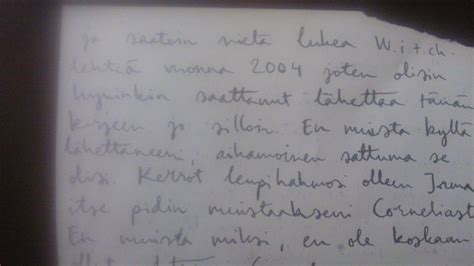 ja saatoin vielä lukea W.i.t.ch.
lehteä vuonna 2004 joten olisin
hyvinkin saattanut lähettää tämän
kirjeen jo silloin. En muista kyllä
lähettäneeni, aikamoinen sattuma se
olisi. Kerrot lempihahmosi olleen Irma
itse pidin muistaakseni Corneliasta
En muista miksi, en ole koskaan